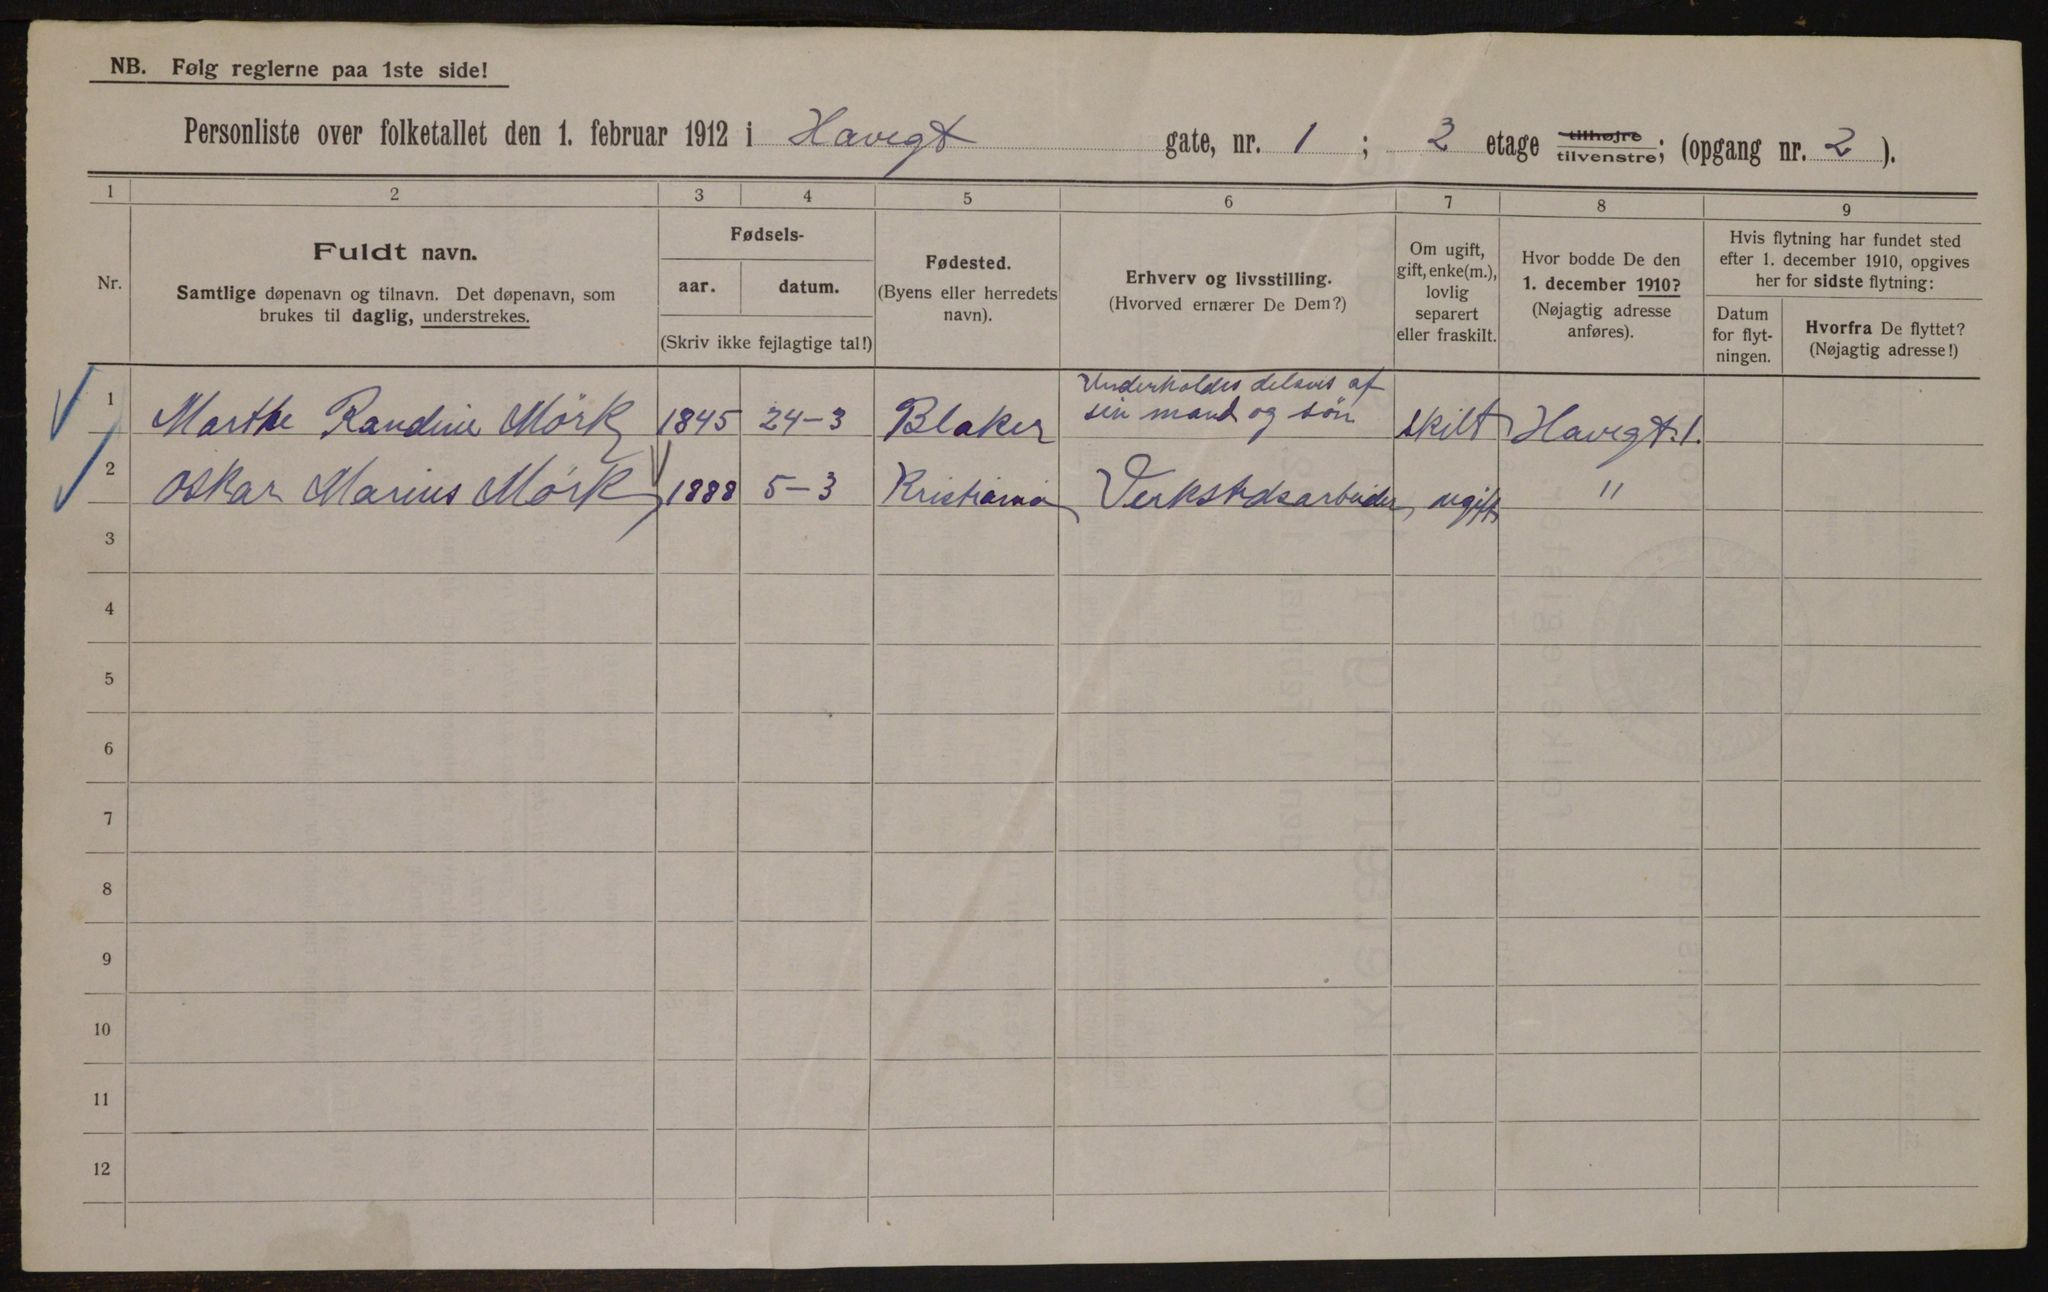 NB. Følg reglerne paa 1ste side!
Personliste over folketallet den 1. februar 1912 i Havegt gate, nr. 1 ; 2 etage tilhøjre tilvenstre; (opgang nr. 2 ).
1 2 3 4 5 6 7 8 9
Nr.
Fuldt navn.
Samtlige døpenavn og tilnavn. Det døpenavn, som
brukes til daglig, understrekes.
Fødsels-
aar. datum.
(Skriv ikke fejlagtige tal!)
Fødested.
(Byens eller herredets
navn).
Erhverv og livsstilling.
(Hvorved ernærer De Dem?)
Om ugift,
gift, enke(m.),
lovlig
separert
eller fraskilt.
Hvor bodde De den
1. december 1910?
(Nøjagtig adresse
anføres).
Hvis flytning har fundet sted
efter 1. december 1910, opgives
her for sidste flytning:
Datum
for flyt-
ningen.
Hvorfra De flyttet?
(Nøjagtig adresse!)
1 Marthe Randine Mörk 1845 24-3 Blaker Underholdes delsvis af
sin mand og sön skilt Havegt. 1.
2 Oskar Marius Mörk 1888 5-3 Kristiania Verkstedsarbeider, ugift "
3
4
5
6
7
8
9
10
11
12